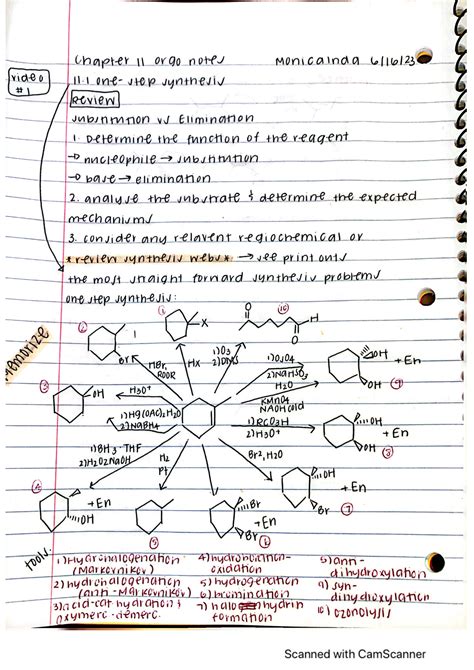 Chapter 11 orgo notes
MonicaInda 6/16/23
video #1
11.1 one-step synthesis
Review
substitution vs Elimination
1. Determine the function of the reagent
→ nucleophile → substitution
→ base → elimination
2. analyse the substrate & determine the expected
mechanisms
3. consider any relavent regiochemical or
*review synthesis webs* → see print outs
the most straight forward synthesis problems
one step synthesis:
memorize
① X
⑩ O H O
② Br
HBr, ROOR
HX
1)O3
2)DMS
1)OsO4
2)NaHSO3
H2O
KMnO4
NaOH cold
OH OH + En ⑨
③ OH
H3O+
1)Hg(OAc)2 H2O
2)NaBH4
1)RCO3H
2)H3O+
OH OH + En ⑧
1)BH3·THF
2)H2O2 NaOH
H2
Pt
Br2, H2O
④ OH + En
⑤
Br Br + En ⑥
OH Br + En ⑦
tools:
1) Hydrohalogenation
(Markovnikov)
2) hydrohalogenation
(anti-Markovnikov)
3) acid-cat hydration &
oxymerc-demerc.
4) hydroboration-
oxidation
5) hydrogenation
6) bromination
7) halohydrin
formation
8) anti-
dihydroxylation
9) syn-
dihydroxylation
10) ozonolysis
Scanned with CamScanner